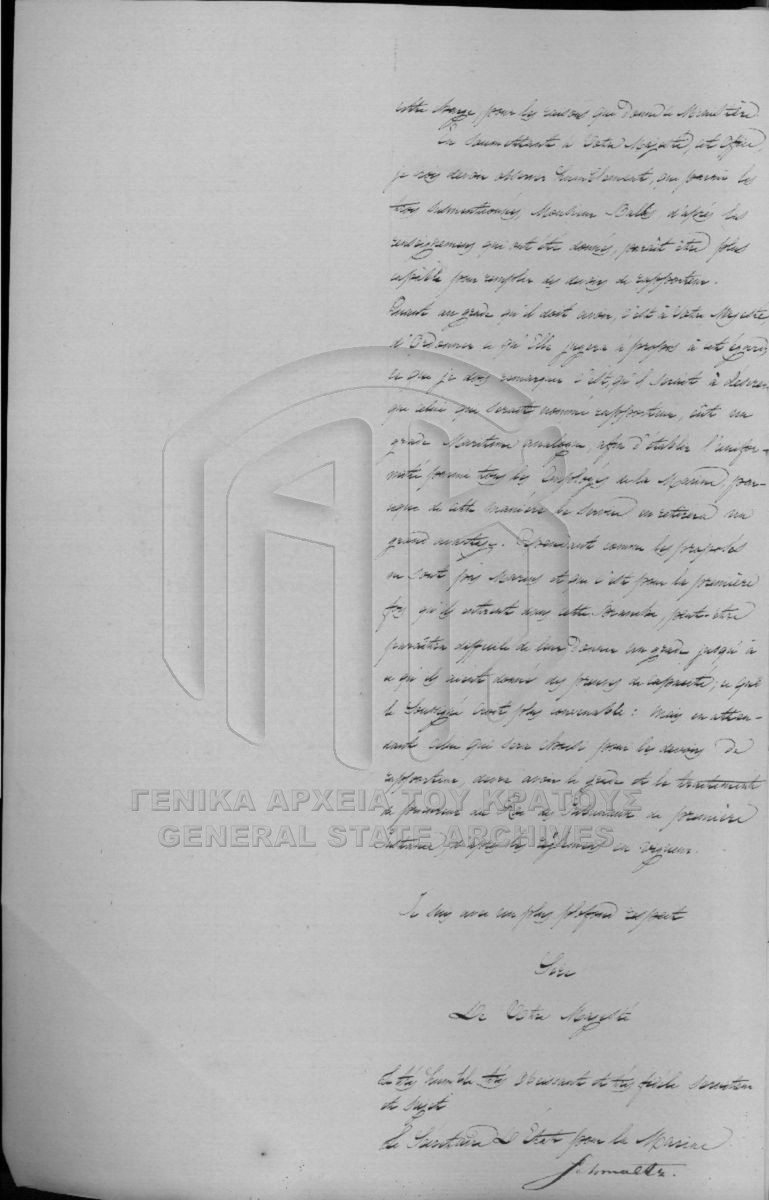 cette charge, pour les raisons que donne le Ministère.
En soumettant à Votre Majesté, cet office,
je dois devoir observer humblement, que parmi les
trois susmentionnés, Monsieur d'après les
renseignemens qui ont été donnés, paroît être plus
capable pour remplir les devoirs de rapporteur.
Quant au grade qu'il doit avoir, c'est à Votre Majesté,
d'Ordonner ce qu'Elle jugera à propos à cet égard,
ce que je dois remarquer c'est, qu'il serait à désirer
que celui qui serait nommé rapporteur, eût un
grade Maritime analogue, afin d'établir l'unifor-
mité parmi tous les Employés de la Marine, par-
ceque de cette manière le Service en retirera un
grand avantage. Cependant comme les proposés
ne sont pas Marins et que c'est pour la première
fois qu'ils entrent dans cette Branche, peut-être
paraîtra difficile de leur donner un grade jusqu'à
ce qu'ils aient donné des preuves de capacité; ce que
le Soussigné croit plus convenable: mais en atten-
dant celui qui sera choisi pour les devoirs de
rapporteur, devra avoir le grade et le traitement
de procureur du Roi des Tribunaux de première
Instance, d'après les réglemens en vigueur.
Je suis avec un plus profond respect
Sire
De Votre Majesté
le très humble très obéissant et très fidèle serviteur
et sujet
Le Secrétaire d'Etat pour la Marine
Schmaltz.
ΓΕΝΙΚΑ ΑΡΧΕΙΑ ΤΟΥ ΚΡΑΤΟΥΣ
GENERAL STATE ARCHIVES